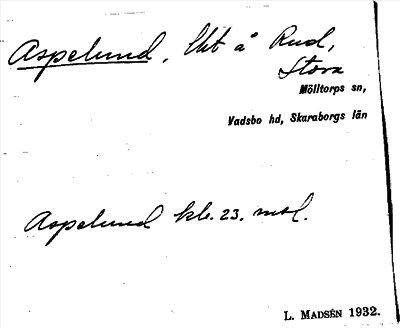 Aspelund, Lht å Rud,
Stora
Mölltorps sn,
Vadsbo hd, Skaraborgs län
Aspelund kle. 23. mtl.
L. MADSÉN 1932.